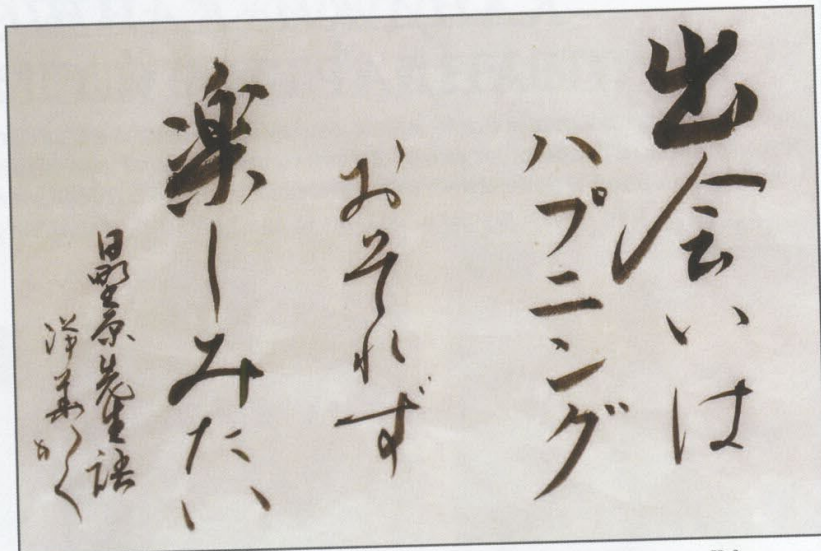 出会いは
ハプニング
おそれず
楽しみたい
日野原先生語